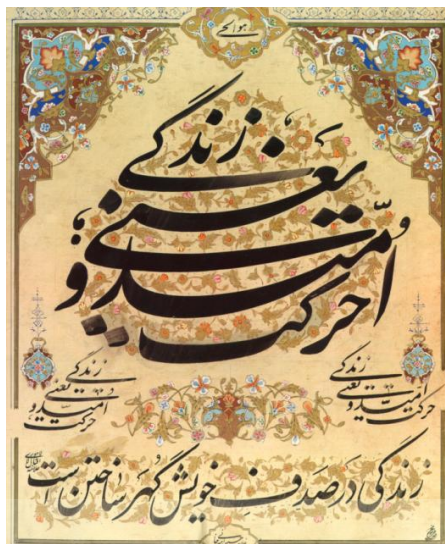 هو الحی
زندگی
یعنی
امید و
حرکت
زندگی
یعنی
امید و
حرکت
زندگی
یعنی
امید و
حرکت
زندگی در صدف خویش گهر ساختن است